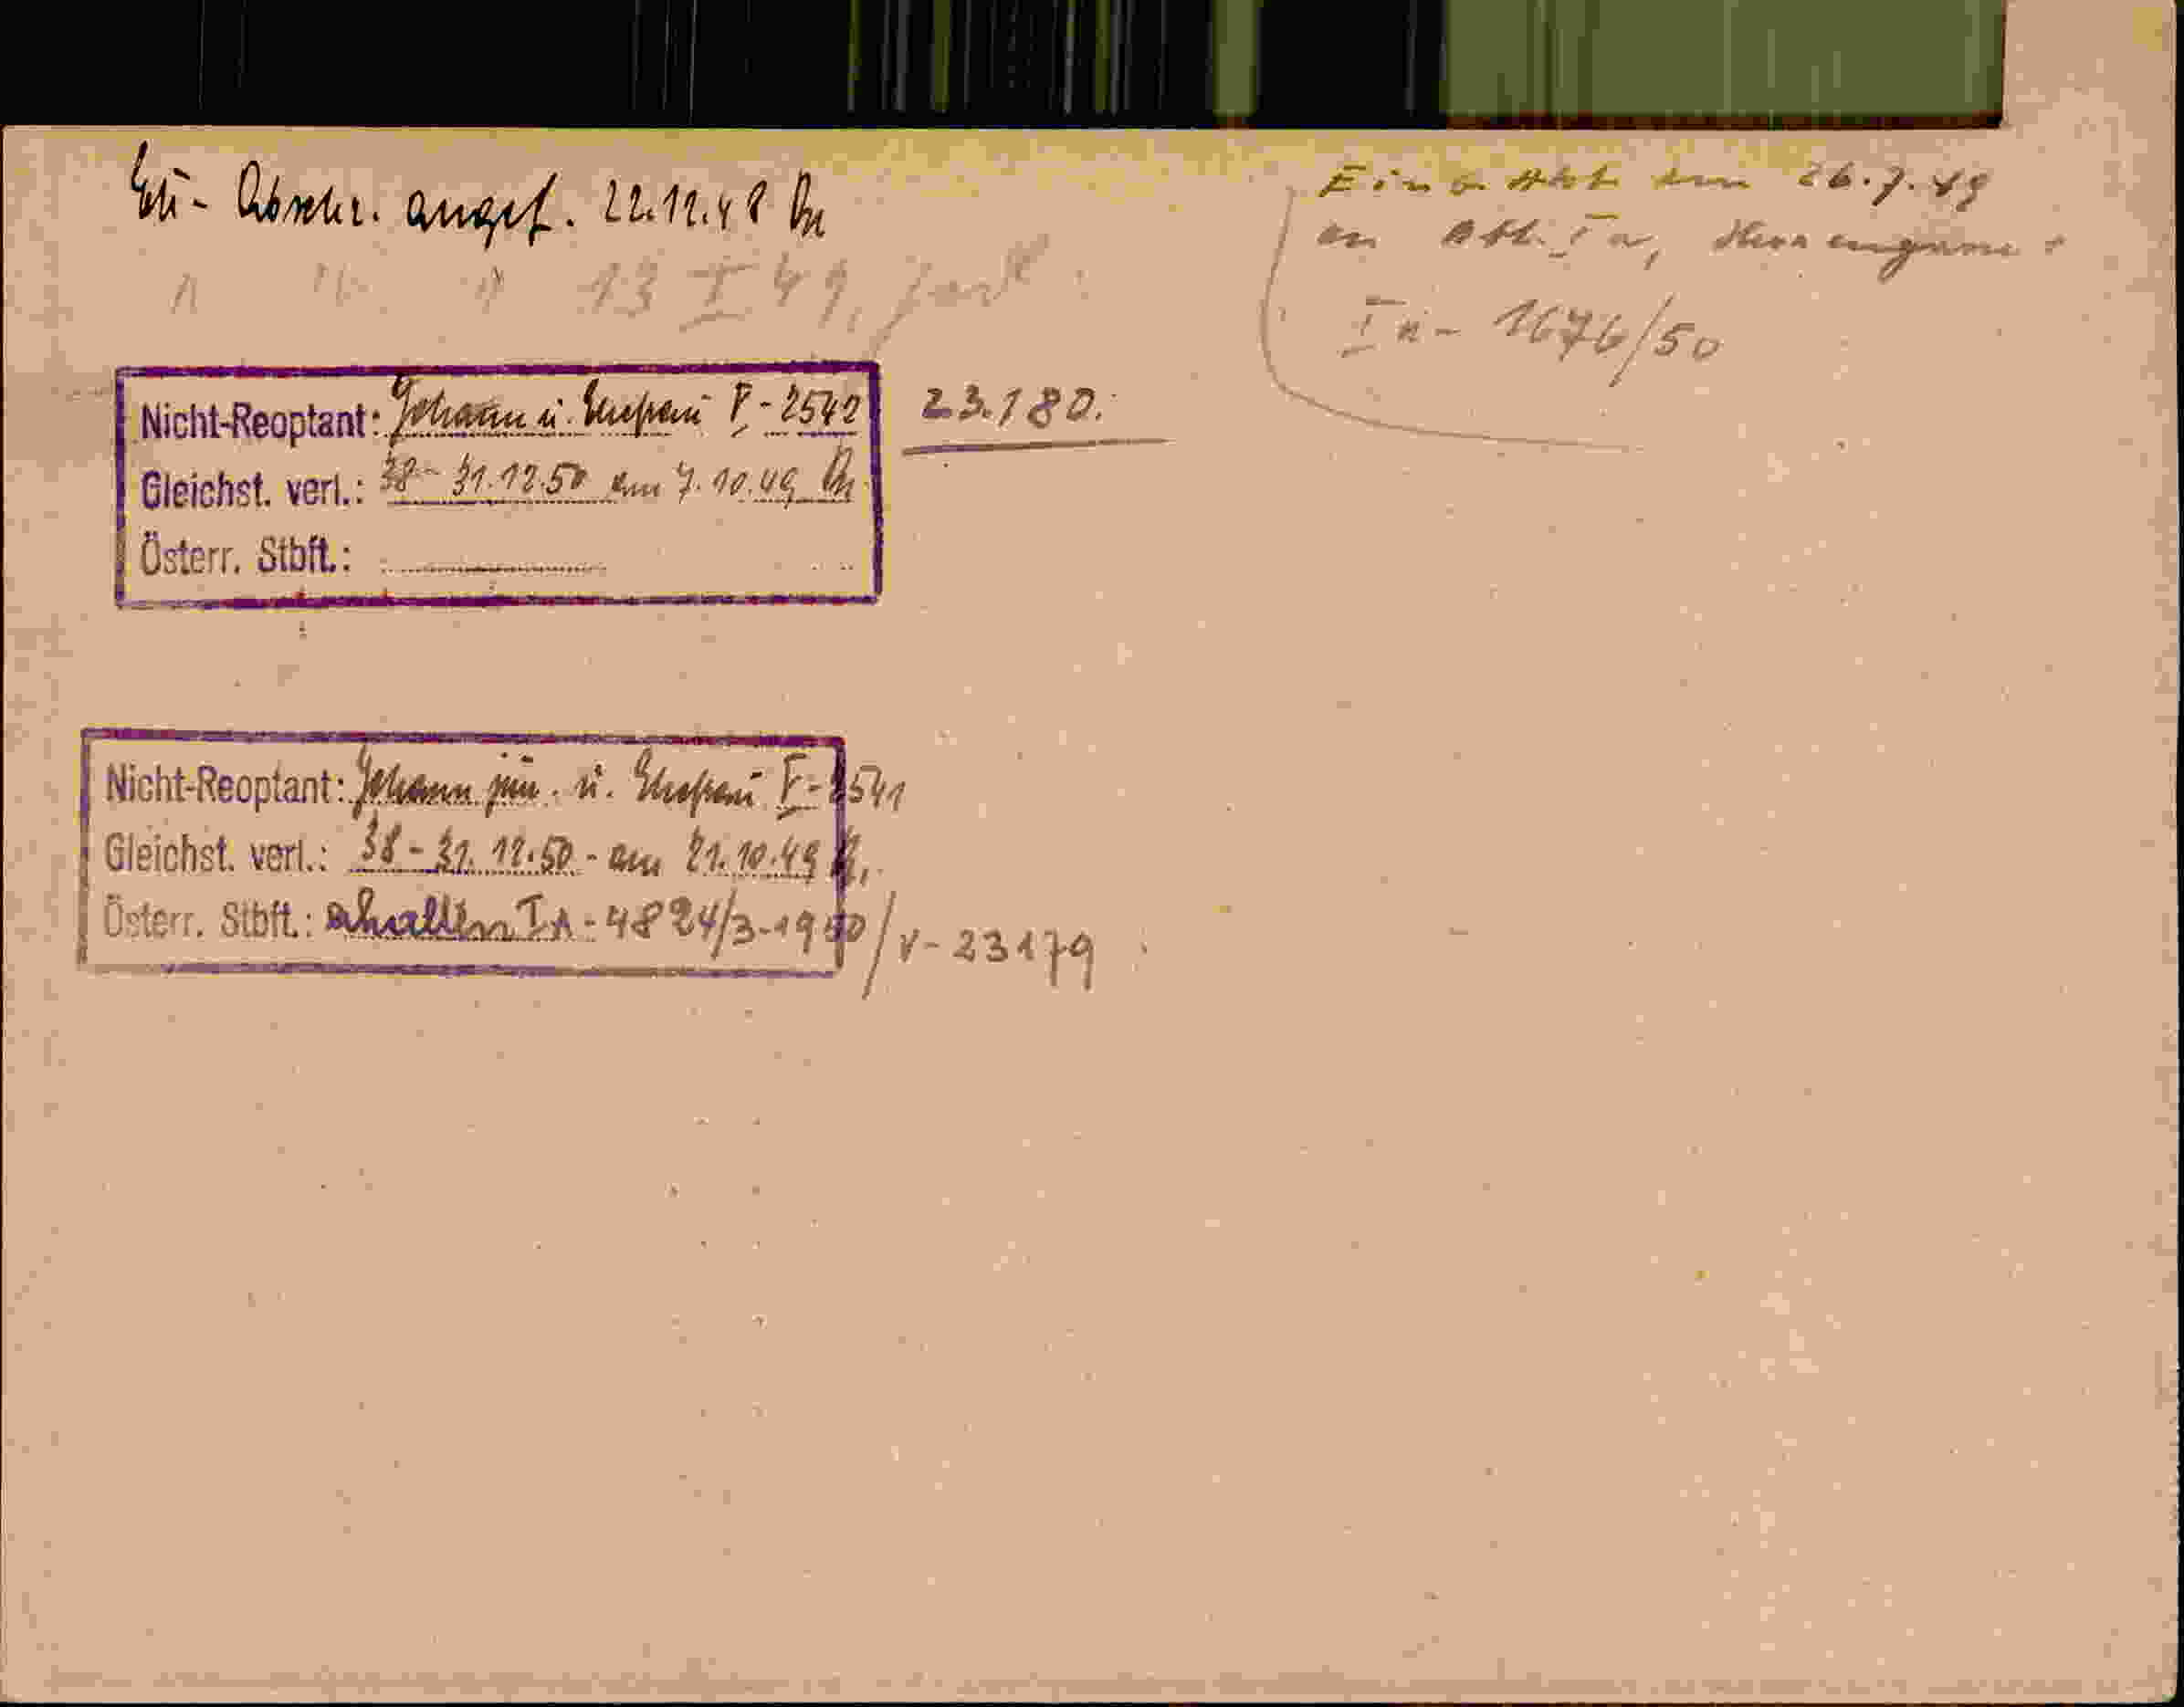 Eli- Abschr. angef. 22.12.48
" " " 13 I 49,
am 26.7.49
an Abt. Ia,
Ia- 1676/50
Nicht-Reoptant: Johann u. Ehefrau V-2542 23.180.
Gleichst. verl.: 38- 31.12.50 am 7.10.49
Österr. Stbft.:
Nicht-Reoptant: Johann jun. u. Ehefrau V-2541
Gleichst. verl.: 38- 31.12.50 - am 21.10.49
Österr. Stbft.: erhalten IA-4824/3-1950 / V-23179